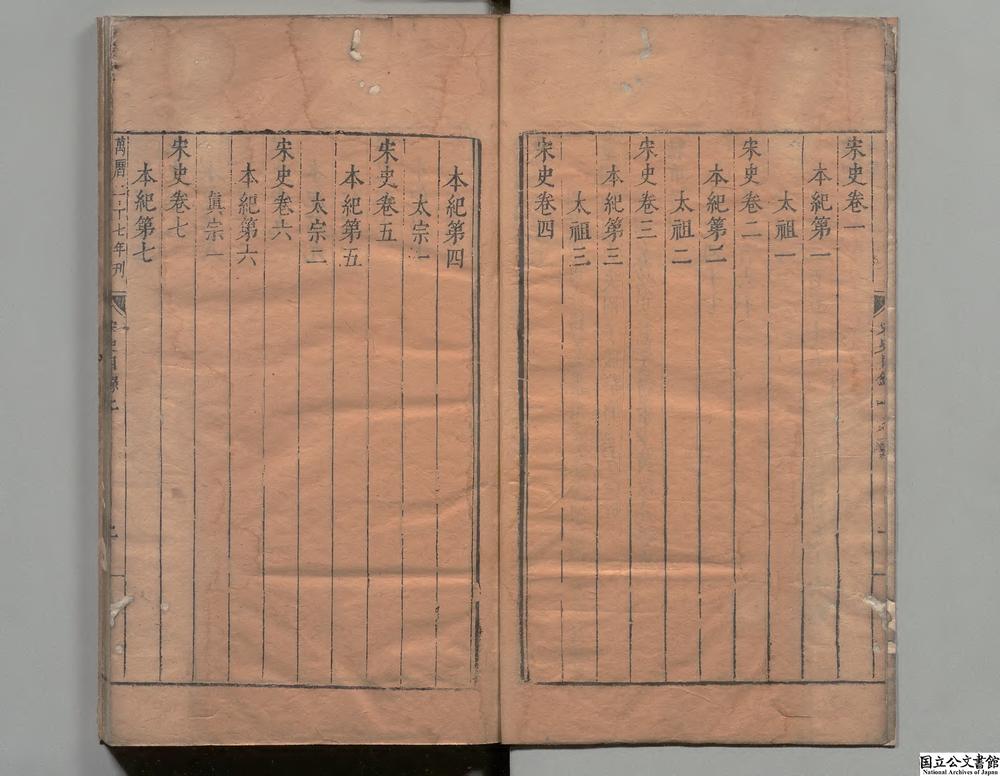 宋史卷一
本紀第一
太祖一
宋史卷二
本紀第二
太祖二
宋史卷三
本紀第三
太祖三
宋史卷四
本紀第四
太宗一
宋史卷五
本紀第五
太宗二
宋史卷六
本紀第六
眞宗一
宋史卷七
本紀第七
萬曆二十七年刊
宋史目錄上
国立公文書館
National Archives of Japan